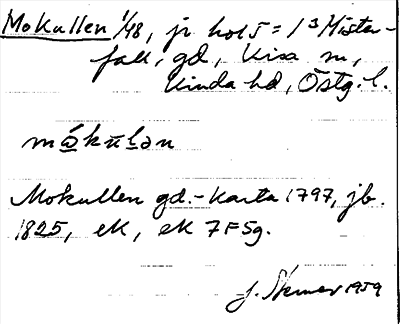 Mokullen 1/48, jr hol 5 = 1³ Mister-
falk, gd, Kisa sn,
Kinda hd, Östg. l.
mókūlan
Mokullen gd. - Karta 1797, jb.
1825, ek, ek 7F5g.
J. 1959